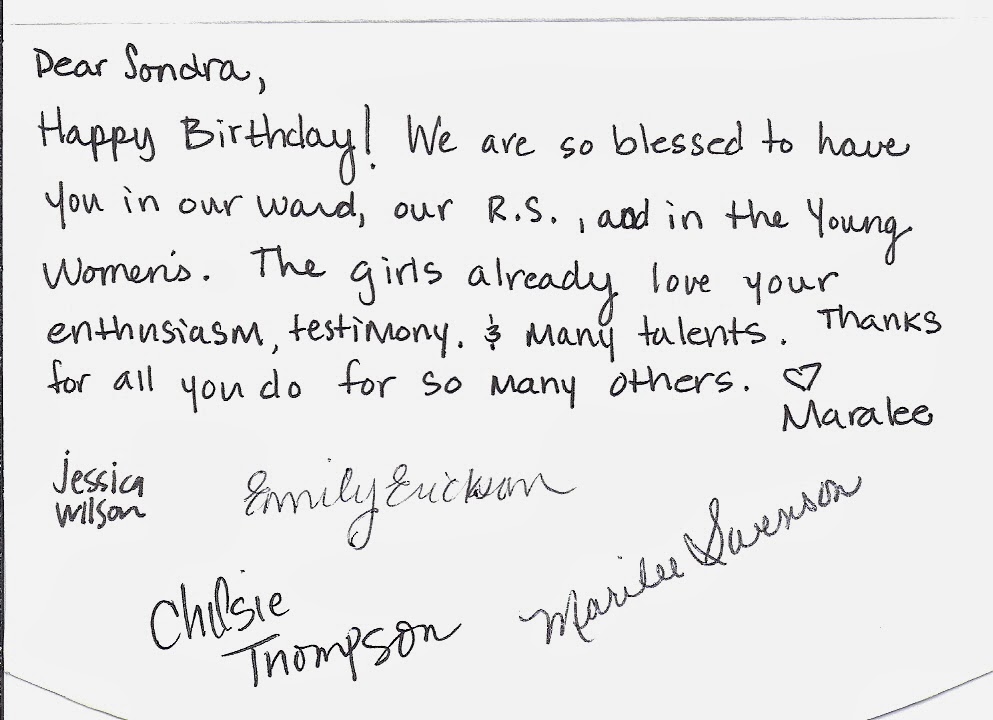 Dear Sondra,
Happy Birthday! We are so blessed to have
you in our ward, our R.S., and in the Young
Women's. The girls already love your
enthusiasm, testimony, & many talents. Thanks
for all you do for so many others. ♡
Maralee
Jessica
Wilson
Emily Erickson
Chelsie
Thompson
Marilee Svenson